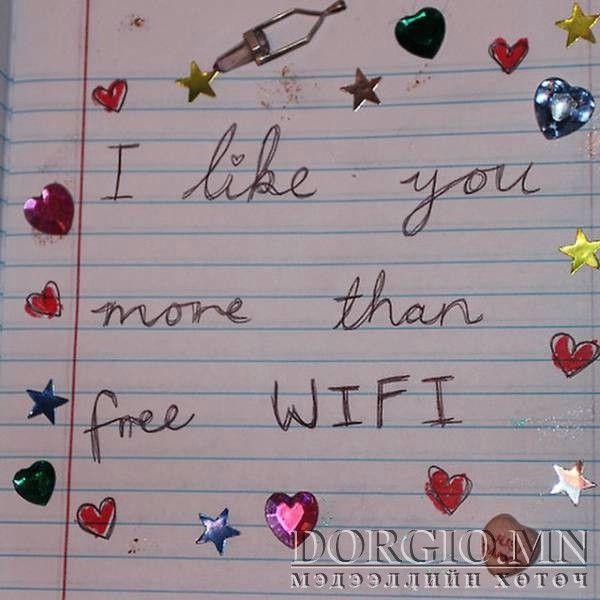 I like you
more than
free WIFI
DORGIO.MN
МЭДЭЭЛЛИЙН ХӨТӨЧ